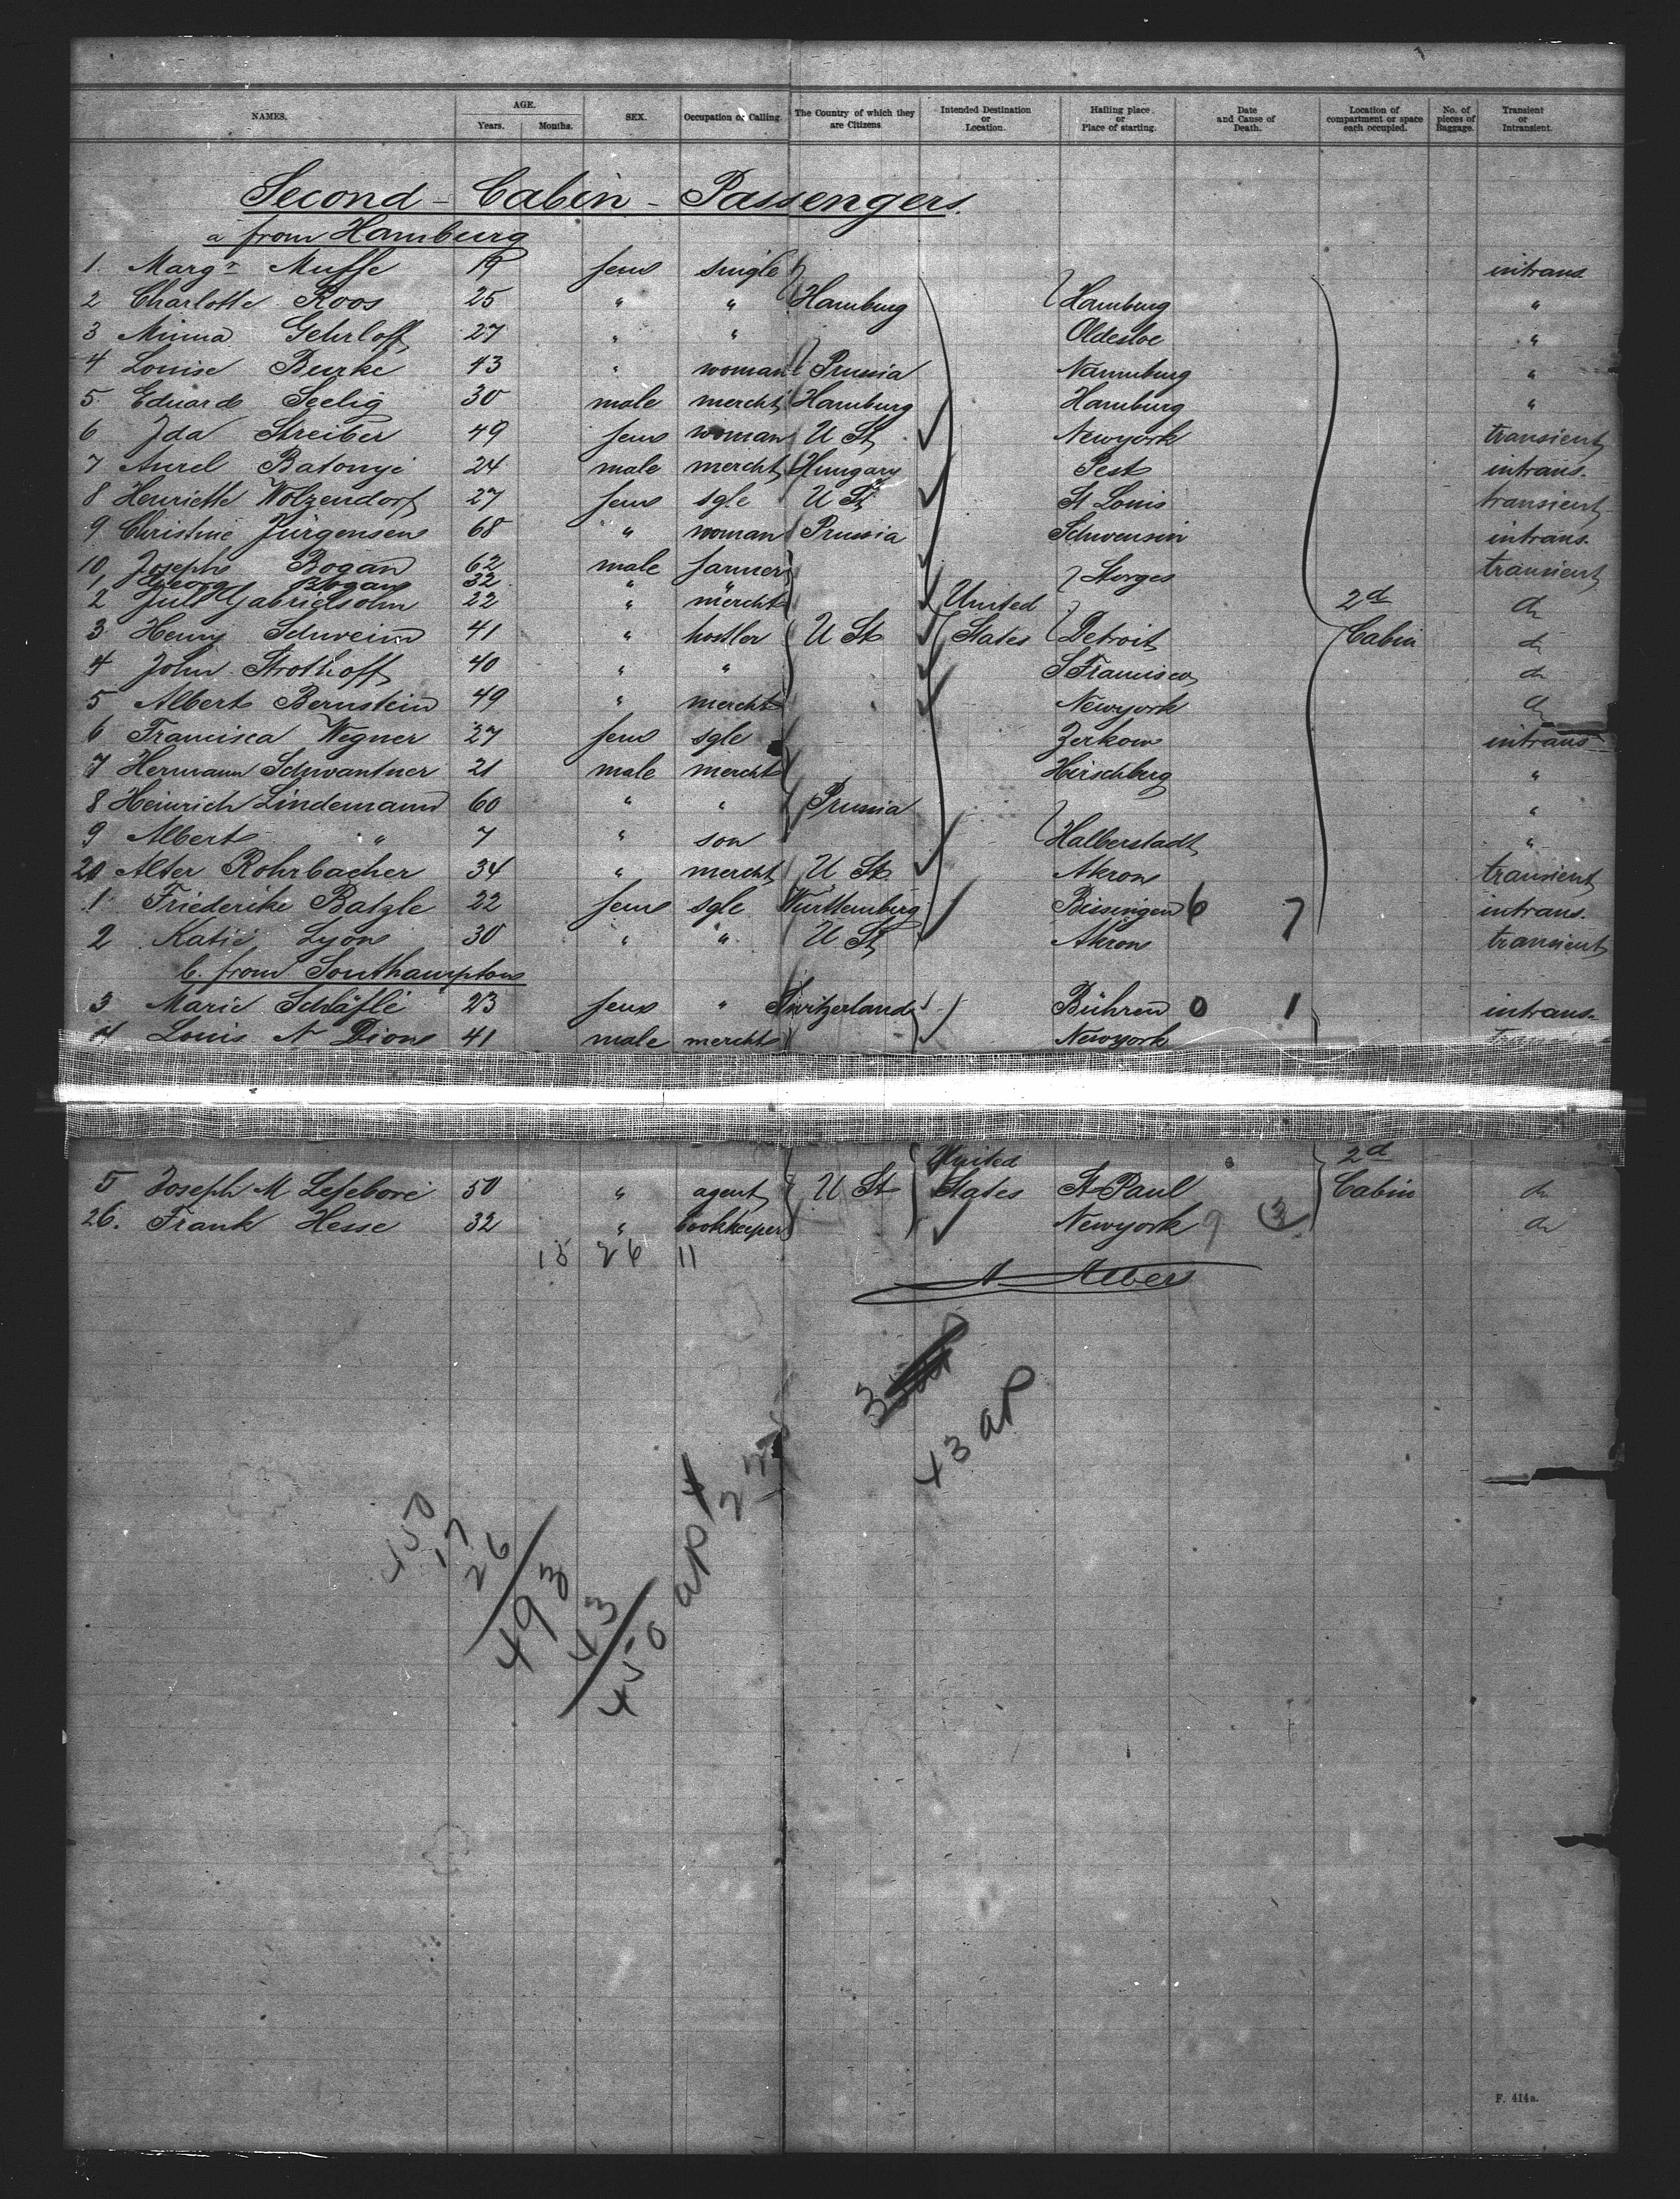 NAMES. AGE. Years. Months. SEX. Occupation or Calling. The Country of which they are Citizens. Intended Destination or Location. Hailing place or Place of starting. Date and Cause of Death. Location of compartment or space each occupied. No. of pieces of Baggage. Transient or Intransient.
Second - Cabin - Passengers.
a from Hamburg
1. Margr Muffe 19 fem single intrans
2 Charlotte Roos 25 " " Hamburg Hamburg "
3 Minna Gehrloff 27 " " Oldesloe "
4 Louise Burke 43 " woman Prussia Naumburg "
5. Eduard Seelig 30 male mercht Hamburg Hamburg "
6 Ida Streiber 49 fem woman U St Newyork transient
7 Aurel Batonyi 24 male mercht Hungary Pest intrans.
8 Henriette Wolzendorf 27 fem sgle U St St Louis transient
9 Christine Jürgensen 68 " woman Prussia Schwensin intrans.
10 Joseph Bogan 62 male farmer transient
1 Georg Bogan 32 " " Storges
2 Jull Gabrielsohn 22 " mercht United 2d do
3 Henry Schwein 41 " hostler U St States Detroit Cabin do
4 John Strothoff 40 " " S Francisco do
5 Albert Bernstein 49 " mercht Newyork do
6 Francisca Wegner 27 fem sgle Zerkow intrans
7 Hermann Schwantner 21 male mercht Hirschberg "
8 Heinrich Lindemann 60 " " Prussia "
9 Albert " 7 " son Halberstadt "
20 Alter Rohrbacher 34 " mercht U St Akron transient
1 Friederike Batzle 22 fem sgle Württemberg Bissingen 6 7 intrans.
2 Katie Lyon 30 " " U St Akron transient
b. from Southampton
3 Marie Schläfle 23 fem " Switzerland Bühren 0 1 intrans.
4 Louis N Dion 41 male mercht Newyork
United 2d
5 Joseph M Lefebore 50 " agent U St States St Paul Cabin do
26. Frank Hesse 32 " bookkeeper Newyork 9 3 do
15 26 11
A Albers
43 aP
450
17
26
493
43
450 aP